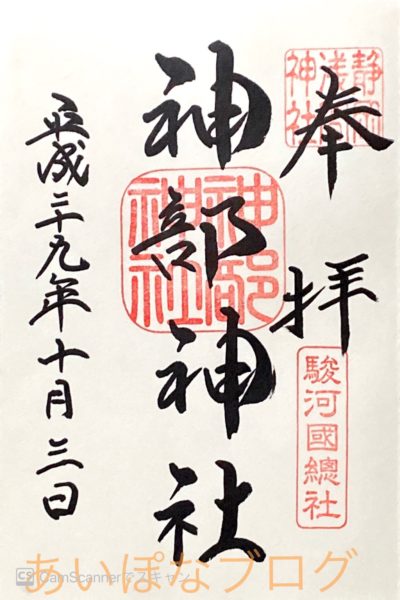 奉拝
静岡
浅間
神社
駿河國總社
神部神社
神部
神社
平成二十九年十月三日
CS CamScannerでスキャン
あいぽなブログ